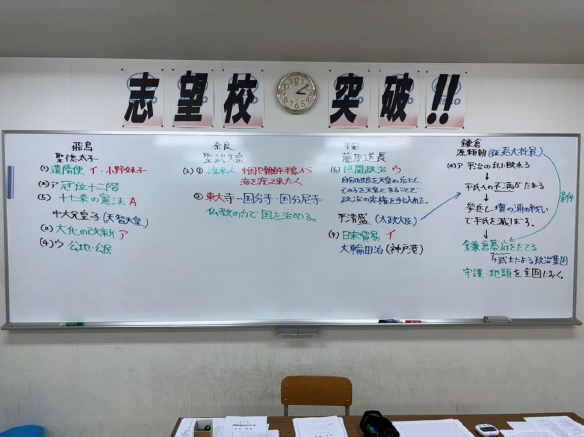 志望校 突破!!
飛鳥
聖徳太子
(1) 遣隋使 イ 小野妹子
(2) ア 冠位十二階
(3) 十七条の憲法 A
中大兄皇子(天智天皇)
(3) 大化の改新 ア
(4) ウ 公地・公民
奈良
聖武天皇
(1) ① 渡来人 中国や朝鮮半島から
海を渡って来た人
② 東大寺-国分寺・国分尼寺
仏教の力で国を治める。
藤原道長
摂関政治 ウ
自分の娘を天皇の后にし
その子を天皇とすることで
政治の実権を手に入れた。
平清盛(太政大臣)
日宋貿易 イ
大輪田泊(神戸港)
鎌倉
源頼朝(征夷大将軍)
平氏への不満がたまる
挙兵し、壇ノ浦の戦い
で平氏を滅ぼす。
鎌倉幕府をたてる
武士による政治集団
守護・地頭を全国におく。